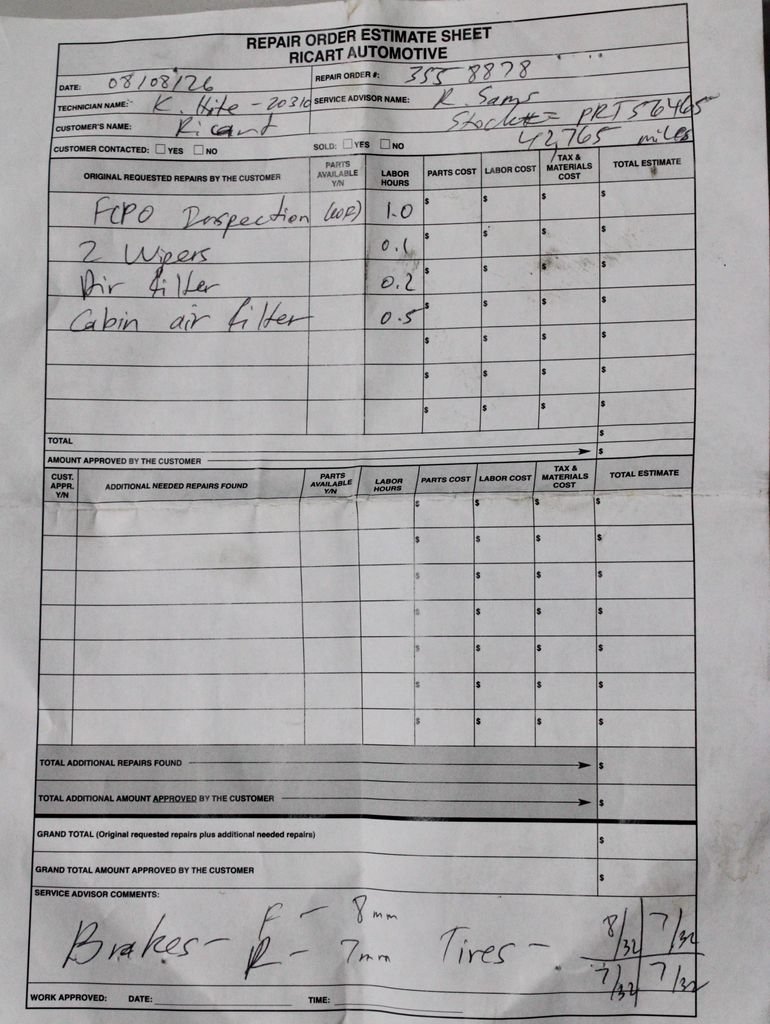 REPAIR ORDER ESTIMATE SHEET
RICART AUTOMOTIVE
DATE: 08/08/26 REPAIR ORDER #: 355 8878
TECHNICIAN NAME: K. Hite - 20310 SERVICE ADVISOR NAME: R. Sams
CUSTOMER'S NAME: Ricart Stock# = PRT56465
42,765 miles
CUSTOMER CONTACTED: YES NO SOLD: YES NO
ORIGINAL REQUESTED REPAIRS BY THE CUSTOMER PARTS AVAILABLE Y/N LABOR HOURS PARTS COST LABOR COST TAX & MATERIALS COST TOTAL ESTIMATE
FCPO Inspection 1.0 $ $ $ $
2 Wipers 0.1 $ $ $ $
Air filter 0.2 $ $ $ $
Cabin air filter 0.5 $ $ $ $
$ $ $ $
$ $ $ $
$ $ $ $
TOTAL $
AMOUNT APPROVED BY THE CUSTOMER $
CUST. APPR. Y/N ADDITIONAL NEEDED REPAIRS FOUND PARTS AVAILABLE Y/N LABOR HOURS PARTS COST LABOR COST TAX & MATERIALS COST TOTAL ESTIMATE
$ $ $ $
$ $ $ $
$ $ $ $
$ $ $ $
$ $ $ $
$ $ $ $
$ $ $ $
TOTAL ADDITIONAL REPAIRS FOUND $
TOTAL ADDITIONAL AMOUNT APPROVED BY THE CUSTOMER $
GRAND TOTAL (Original requested repairs plus additional needed repairs) $
GRAND TOTAL AMOUNT APPROVED BY THE CUSTOMER $
SERVICE ADVISOR COMMENTS:
Brakes - F - 8mm Tires - 8/32 7/32
R - 7mm 7/32 7/32
WORK APPROVED: DATE: TIME: